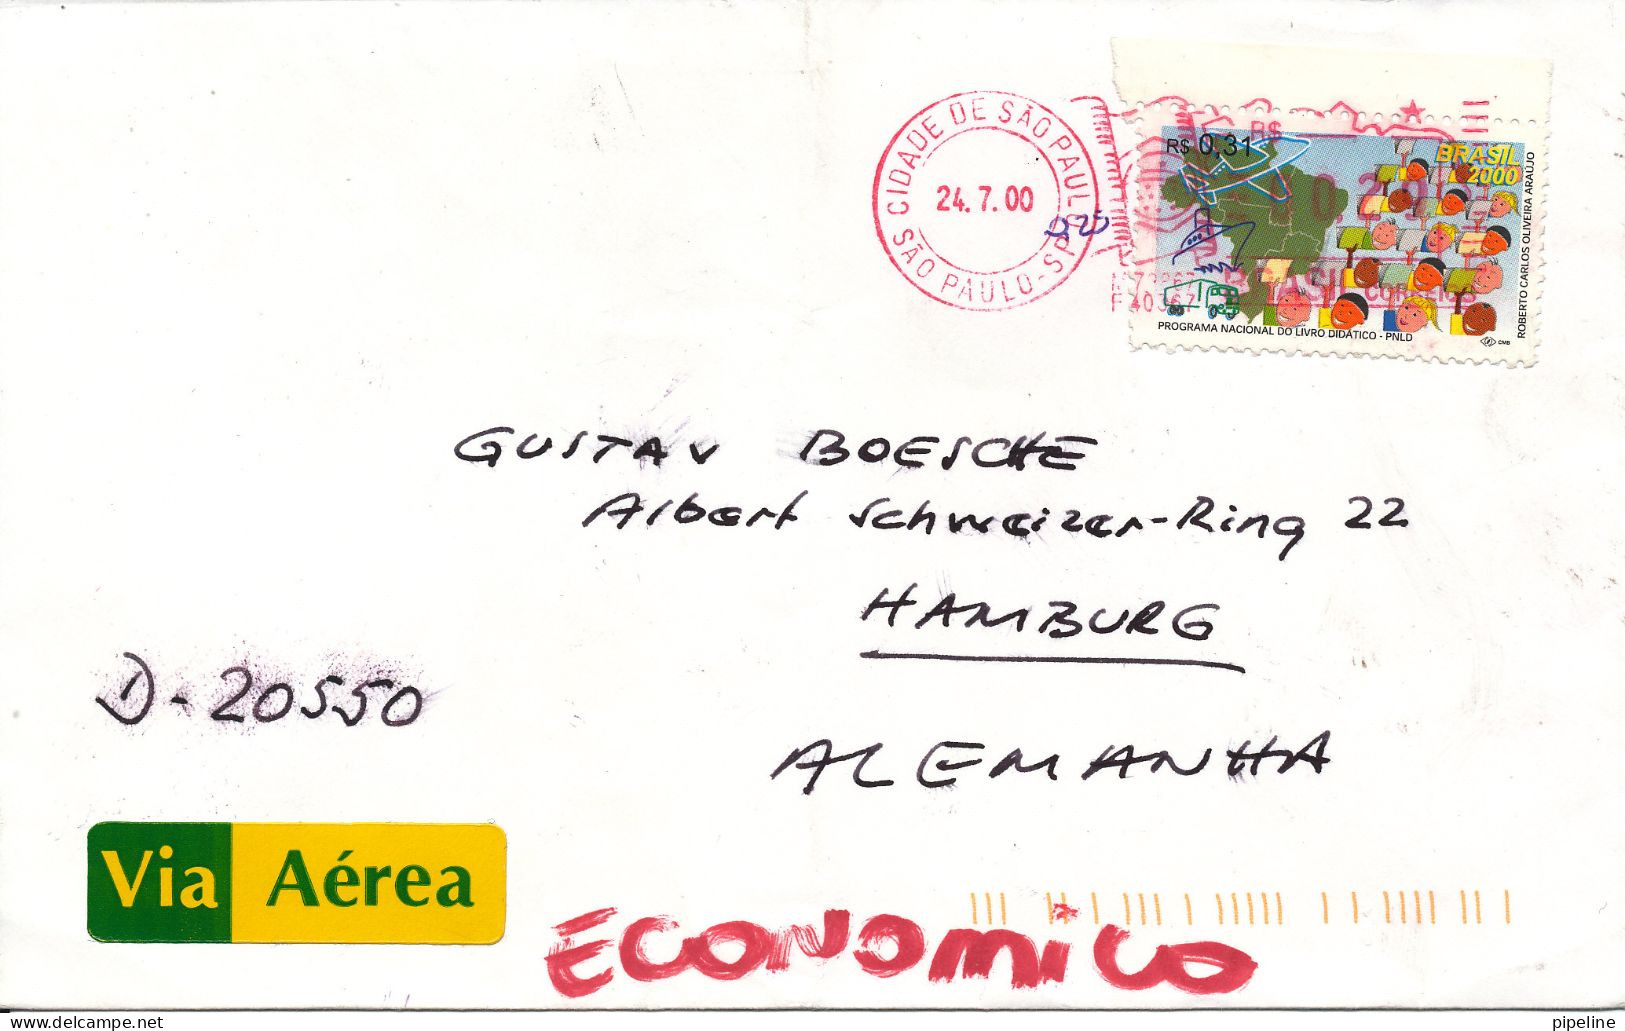 CIDADE DE SÃO PAULO
24.7.00
SÃO PAULO-SP
R$ 0,31
R$
BRASIL
2000
BRASIL CORREIOS
PROGRAMA NACIONAL DO LIVRO DIDÁTICO - PNLD
CMB
ROBERTO CARLOS OLIVEIRA ARAÚJO
GUSTAV BOESCHE
Albert Schweizer-Ring 22
HAMBURG
D-20550
ALEMANHA
Via Aérea
ECONOMICO
pipeline